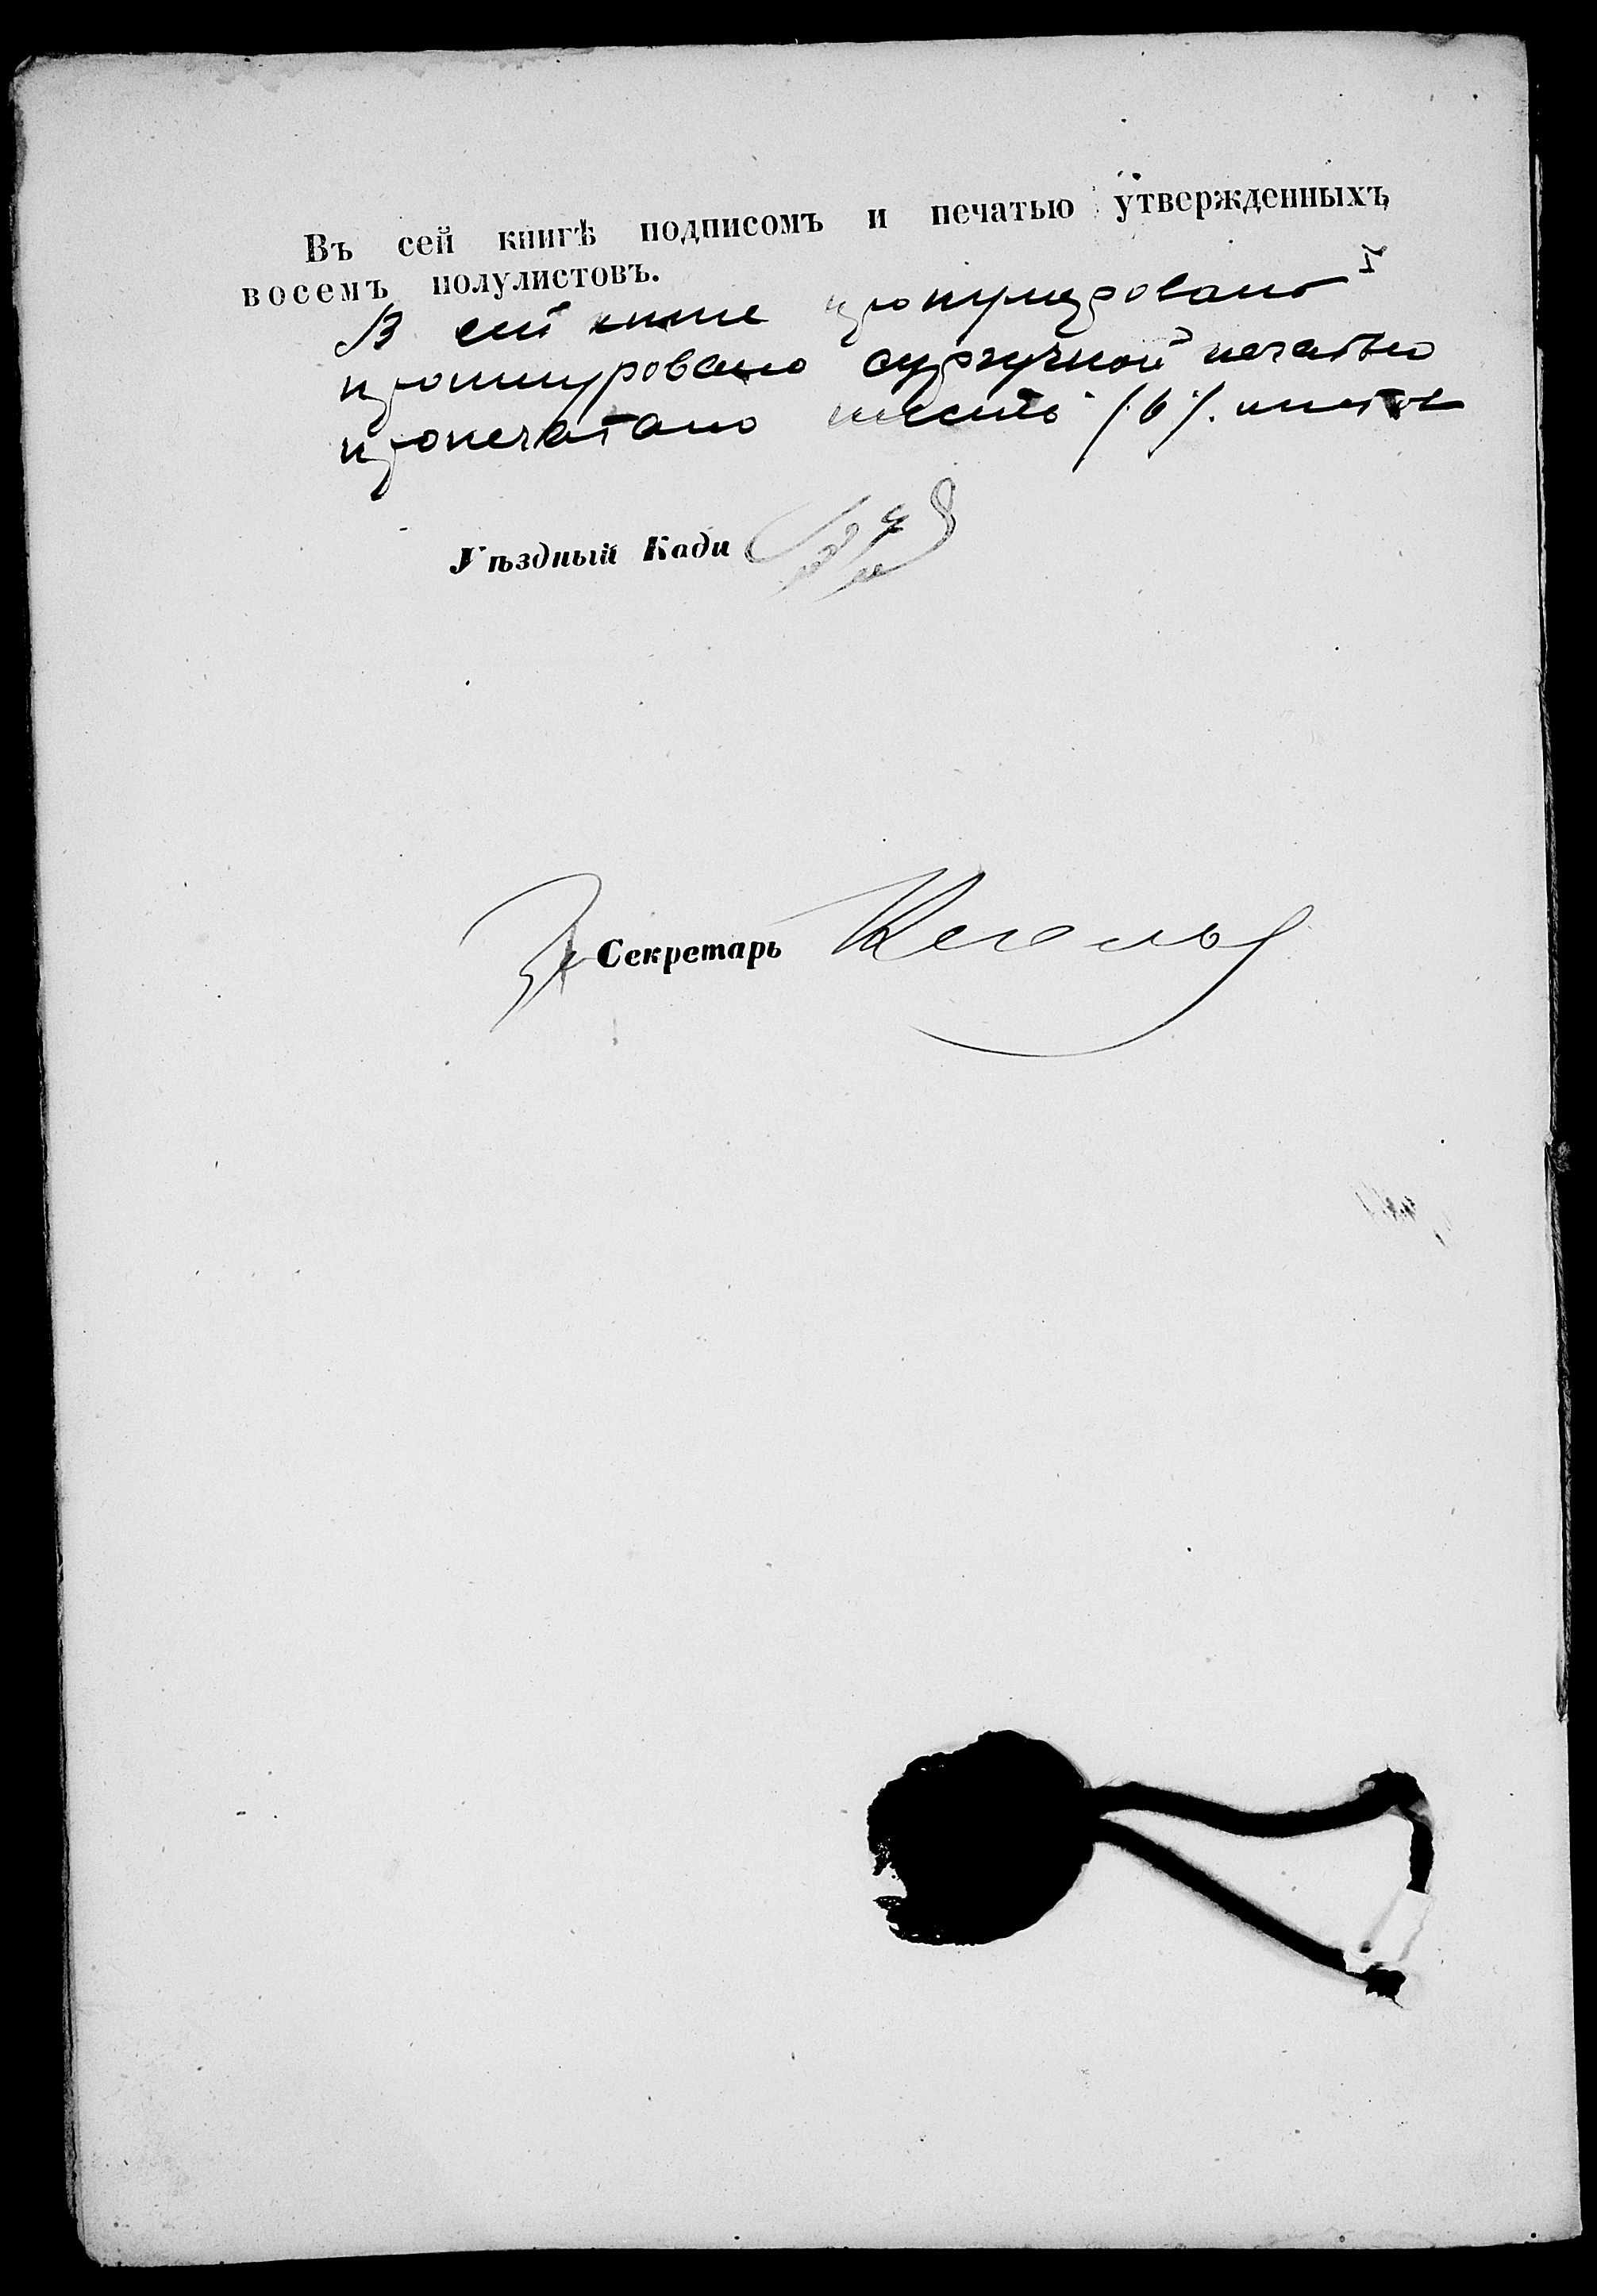 Въ сей книгѣ подписомъ и печатью утвержденныхъ
восемъ полулистовъ.
В сей книге пронумеровано
прошнуровано сургучной печатью
пропечатано шесть /6/. листов
Уѣздный Кади
Секретарь